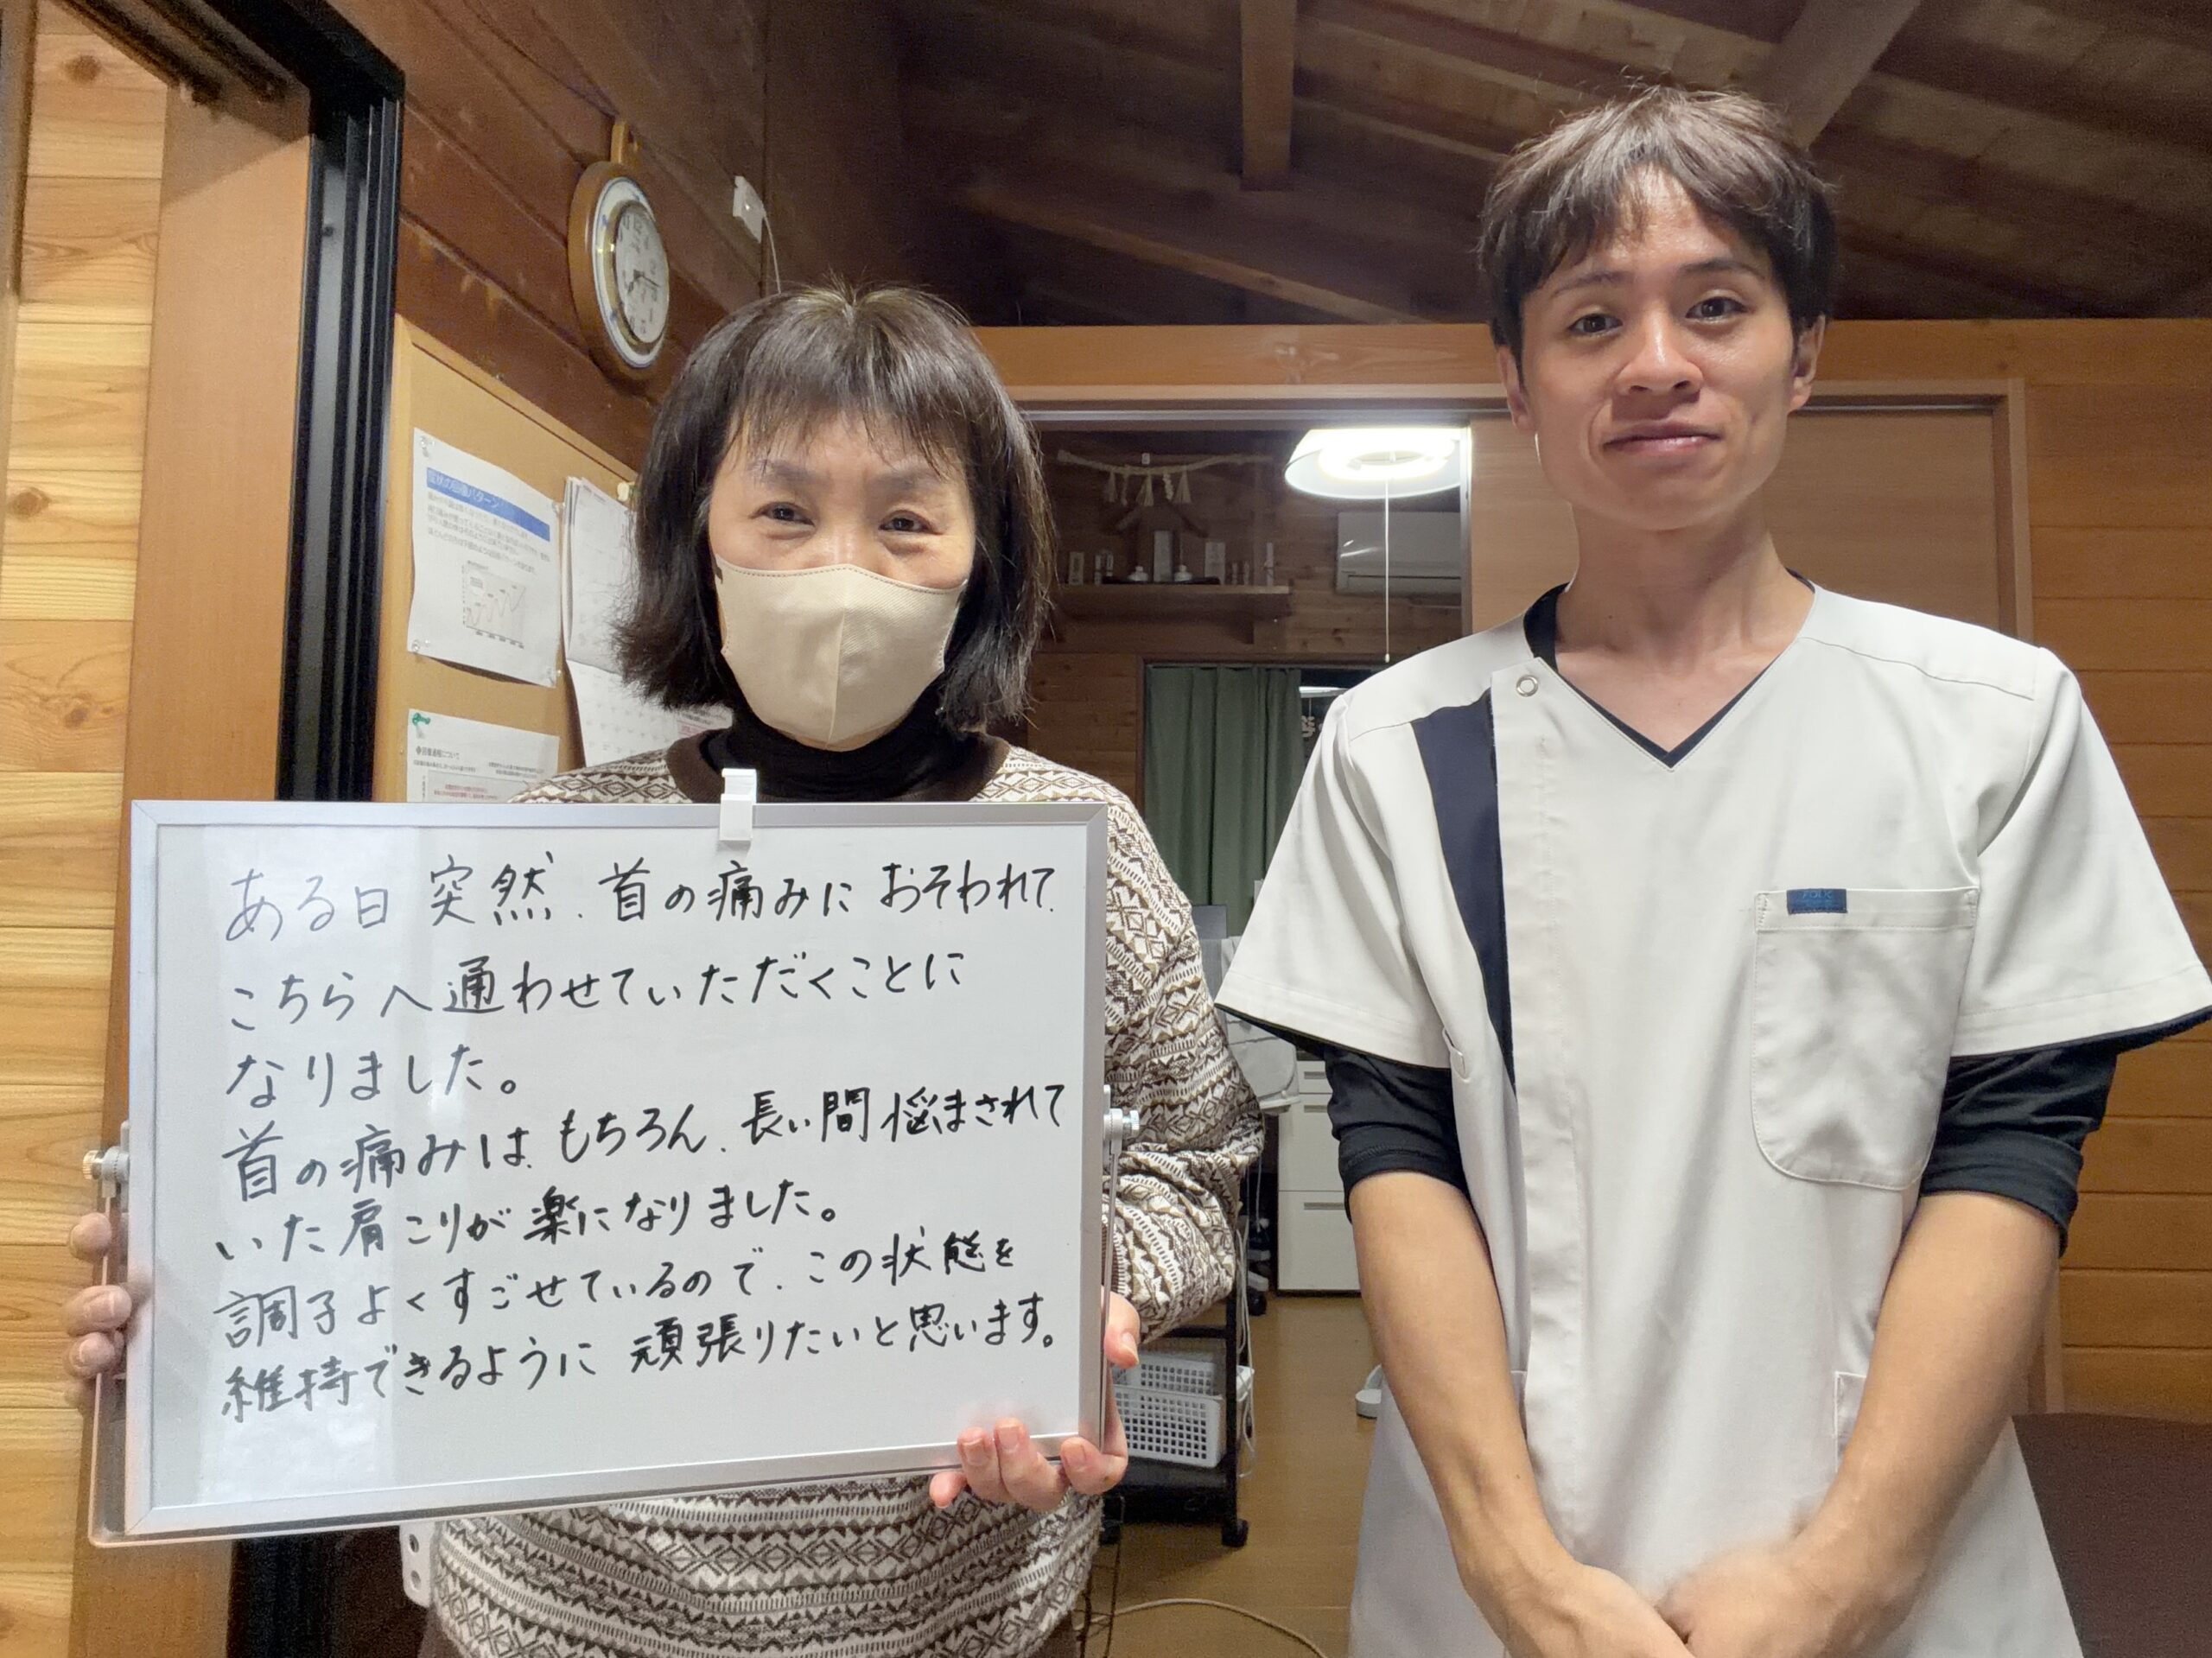 ある日突然、首の痛みにおそわれて、
こちらへ通わせていただくことに
なりました。
首の痛みは、もちろん、長い間悩まされて
いた肩こりが楽になりました。
調子よくすごせているので、この状態を
維持できるように頑張りたいと思います。